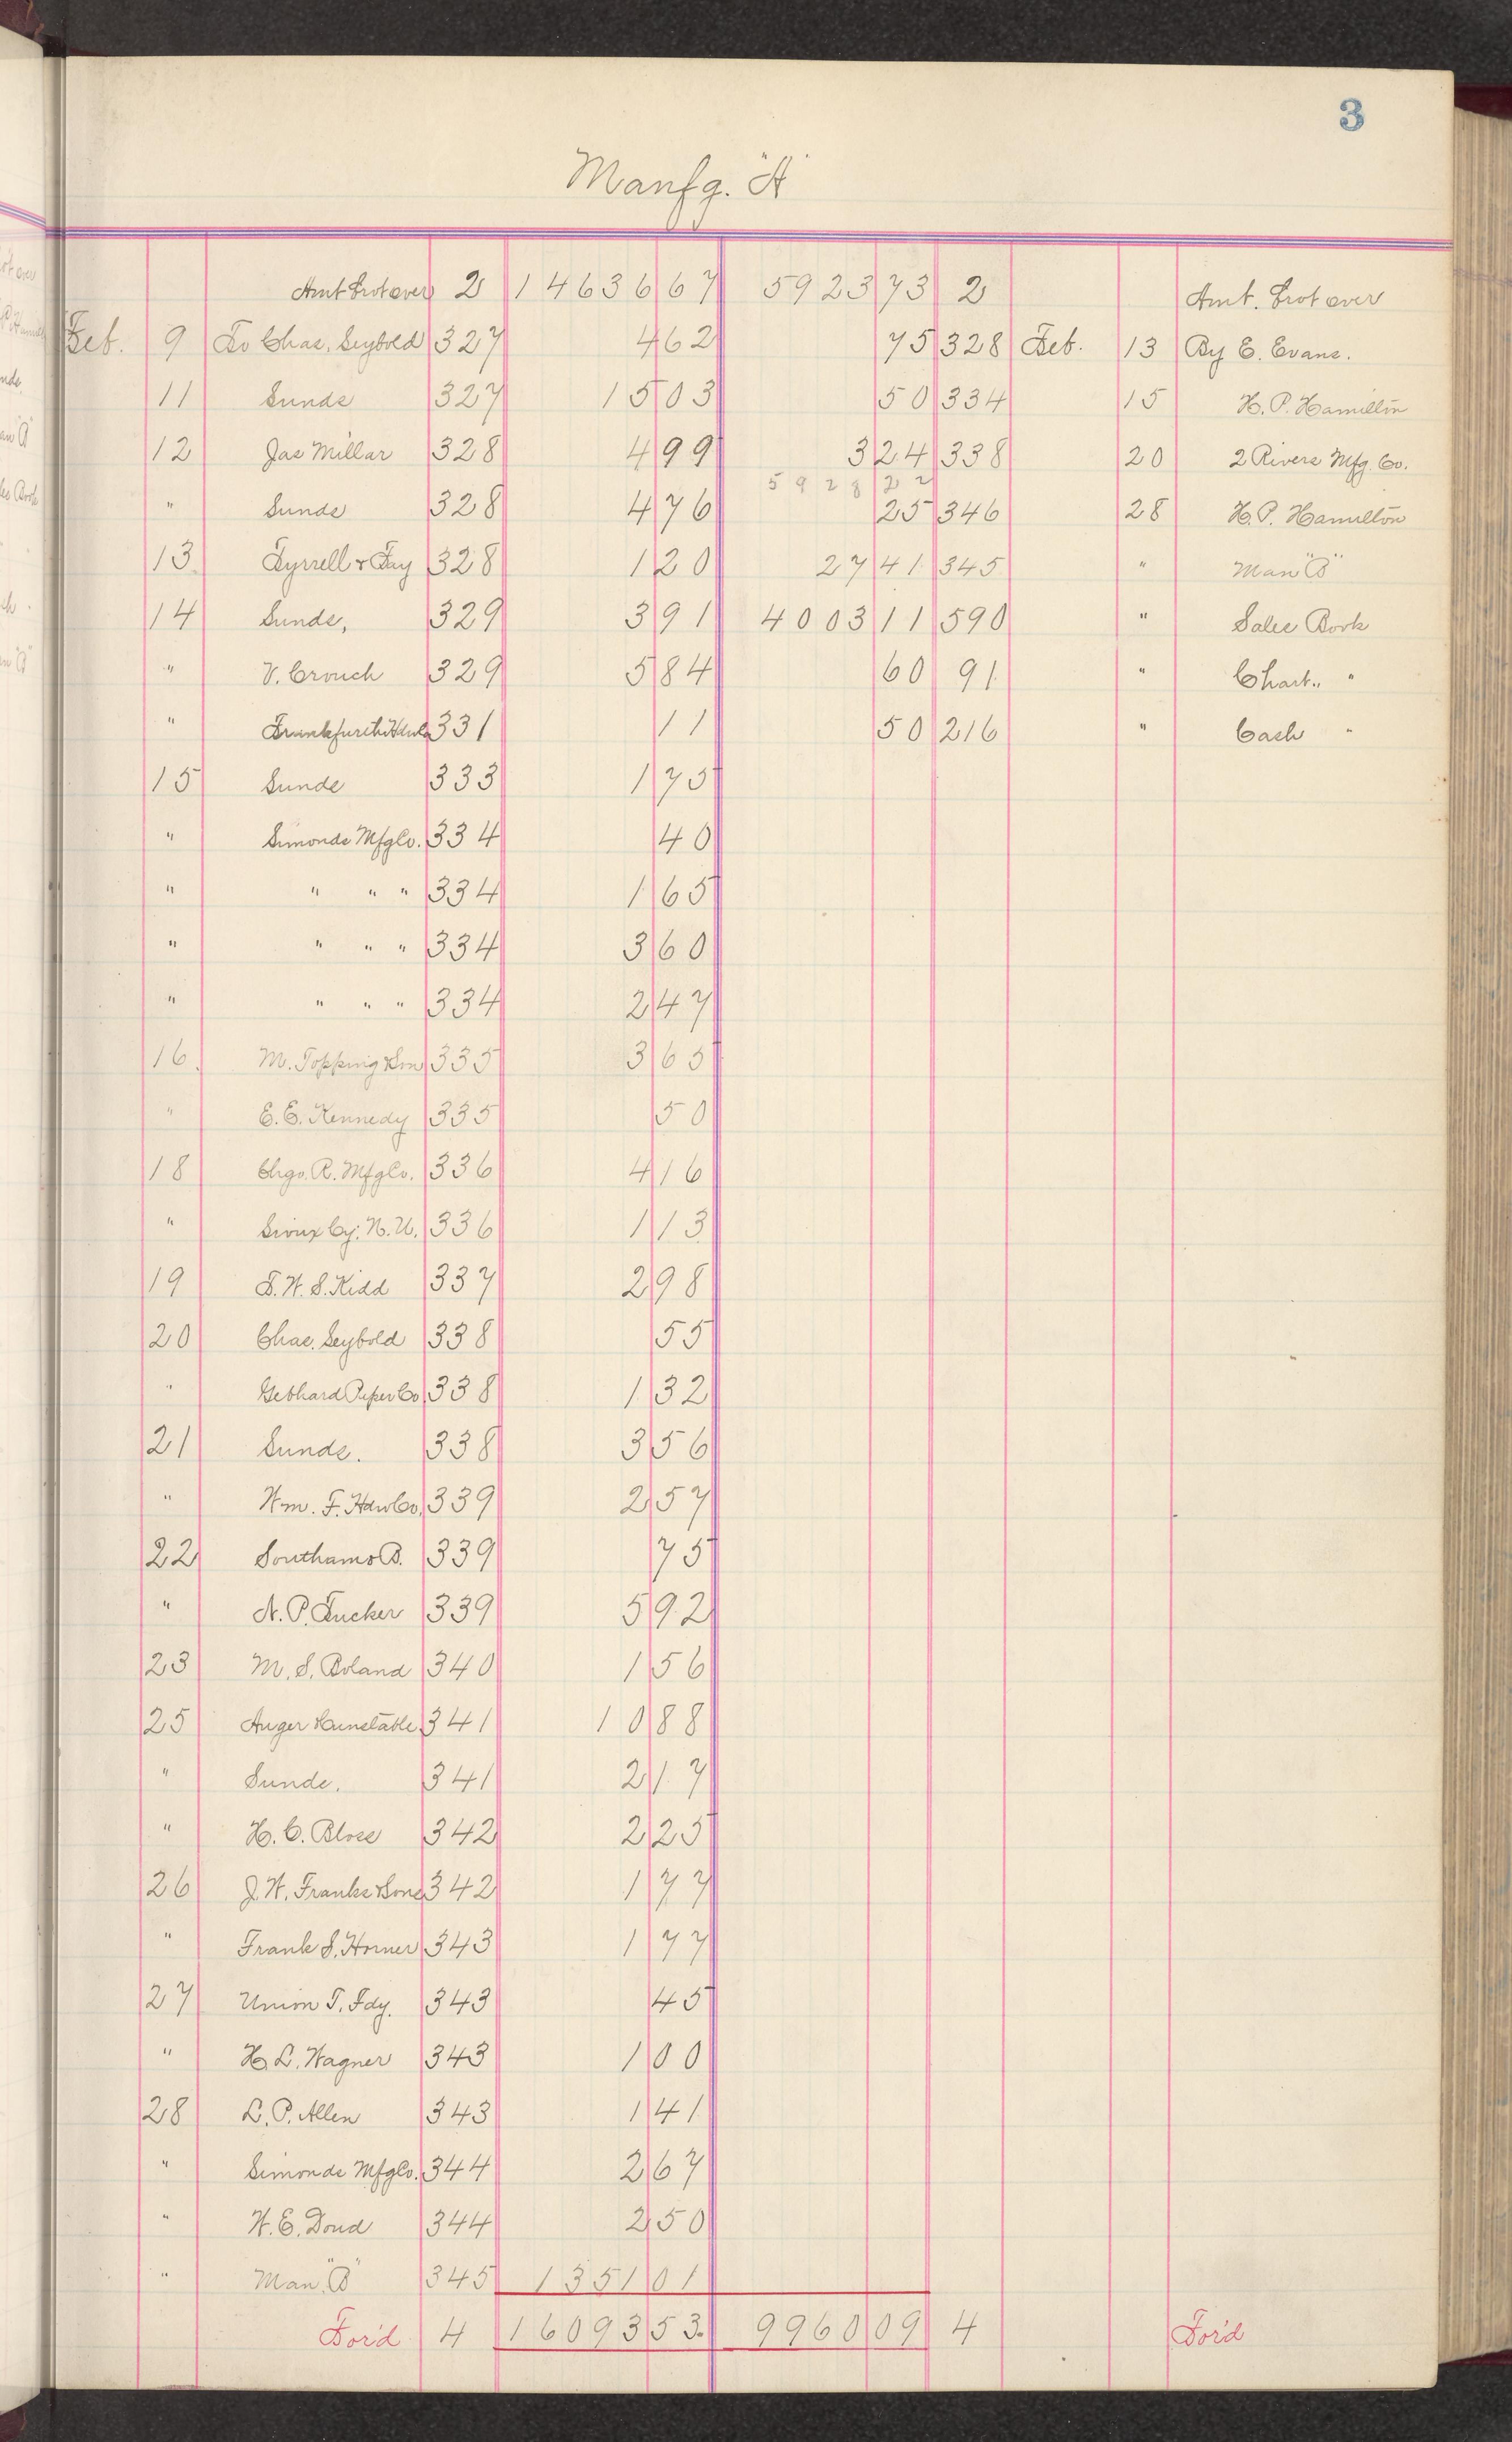 3
Manfg. "A"
Amt brot over 2 14636 67 5923 73 2 Amt. brot over
Feb. 9 To Chas. Seybold 327 4 62 75 328 Feb. 13 By E. Evans.
11 Sunds 327 15 03 50 334 15 H. P. Hamilton
12 Jas Millar 328 4 99 3 24 338 20 2 Rivers Mfg. Co.
5928 22
" Sunds 328 4 76 25 346 28 H. P. Hamilton
13 Tyrrell & Fay 328 1 20 27 41 345 " Man "B"
14 Sunds, 329 3 91 4003 11 590 " Sales Book
" V. Crouch 329 5 84 60 91 " Chart. "
" Frankfurth Hdw Co 331 11 50 216 " Cash "
15 Sunds 333 1 75
" Simonds Mfg Co. 334 40
" " " " 334 1 65
" " " " 334 3 60
" " " " 334 2 47
16 M. Topping & Son 335 3 65
" E. E. Kennedy 335 50
18 Chgo. R. Mfg Co. 336 4 16
" Sioux Cy. N. U. 336 1 13
19 F. W. S. Kidd 337 2 98
20 Chas. Seybold 338 55
" Gebhard Paper Co 338 1 32
21 Sunds. 338 3 56
" Wm. F. Hdw Co. 339 2 57
22 Southams B. 339 75
" N. P. Tucker 339 5 92
23 M. S. Boland 340 1 56
25 Auger & Cunstable 341 10 88
" Sunds. 341 2 17
" H. C. Blose 342 2 25
26 J. W. Franks & Sons 342 1 77
" Frank S. Horner 343 1 77
27 Union T. Fdy. 343 45
" H. L. Wagner 343 1 00
28 L. P. Allen 343 1 41
" Simonds Mfg Co. 344 2 67
" W. E. Doud 344 2 50
" Man. "B" 345 1351 01
For'd 4 16093 53 9960 09 4 For'd